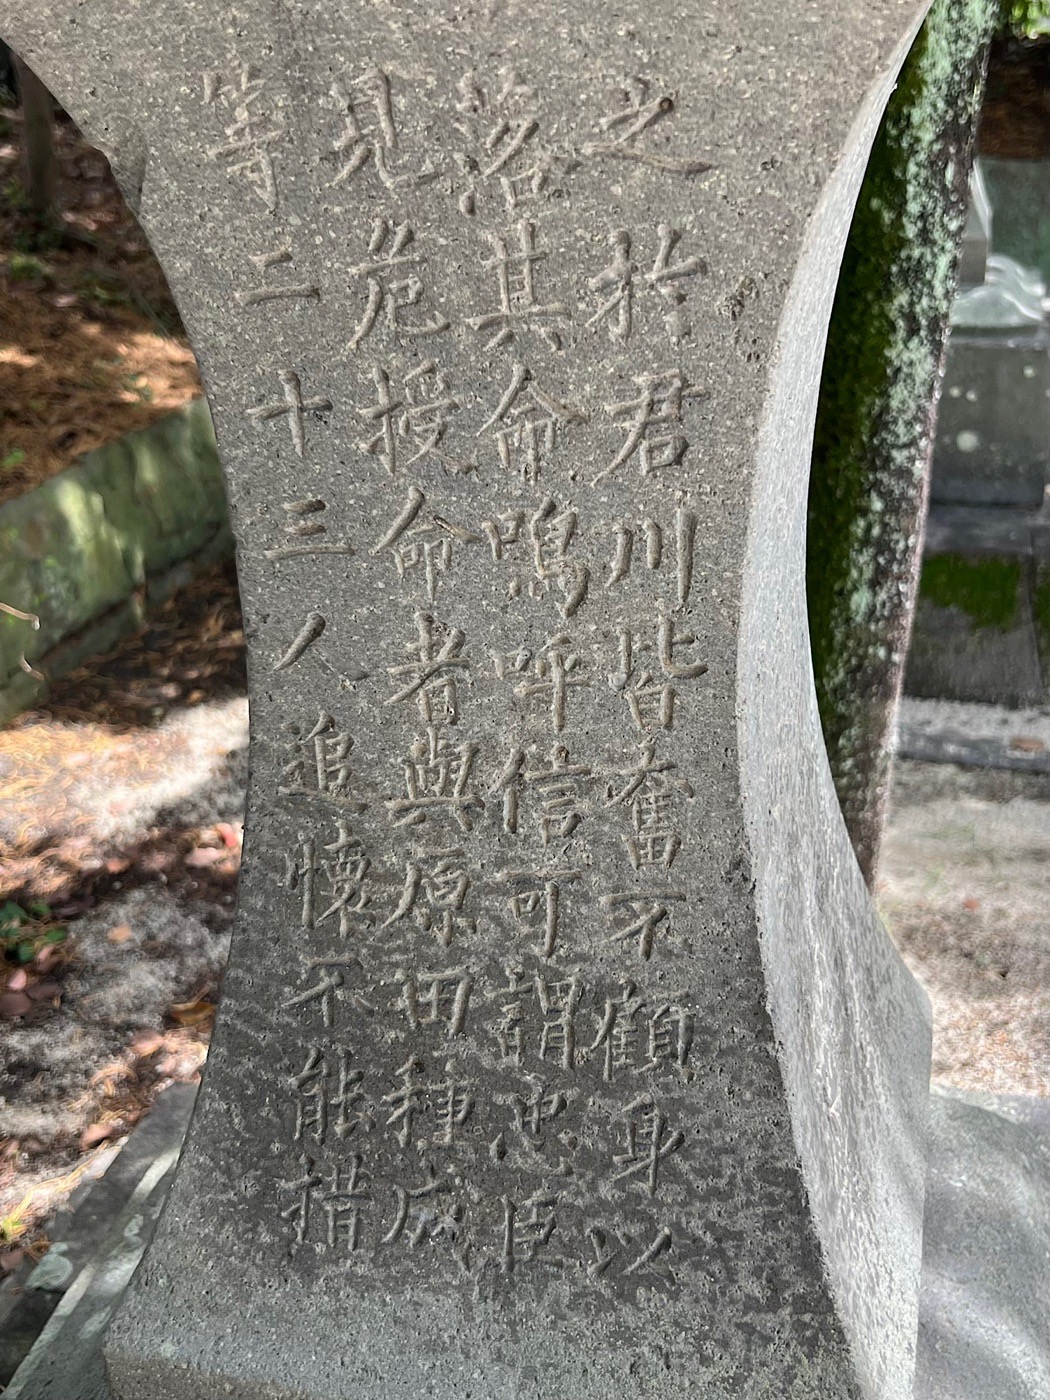 之於君川皆奮不顧身以
落其命嗚呼信可謂忠臣
見危授命者與原田種成
等二十三人追懷不能措